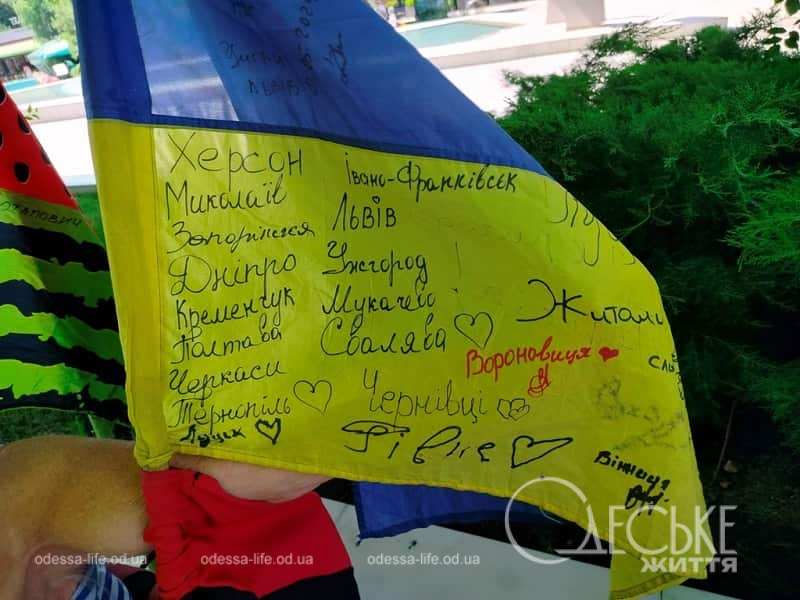 Херсон
Миколаїв
Запоріжжя
Дніпро
Кременчук
Полтава
Черкаси
Тернопіль
Луцьк
Івано-Франківськ
Львів
Ужгород
Мукачево
Свалява
Чернівці
Рівне
Житоми
Вороновиця
Вінниця
odessa-life.od.ua
odessa-life.od.ua
odessa-life.od.ua
Одеське
життя